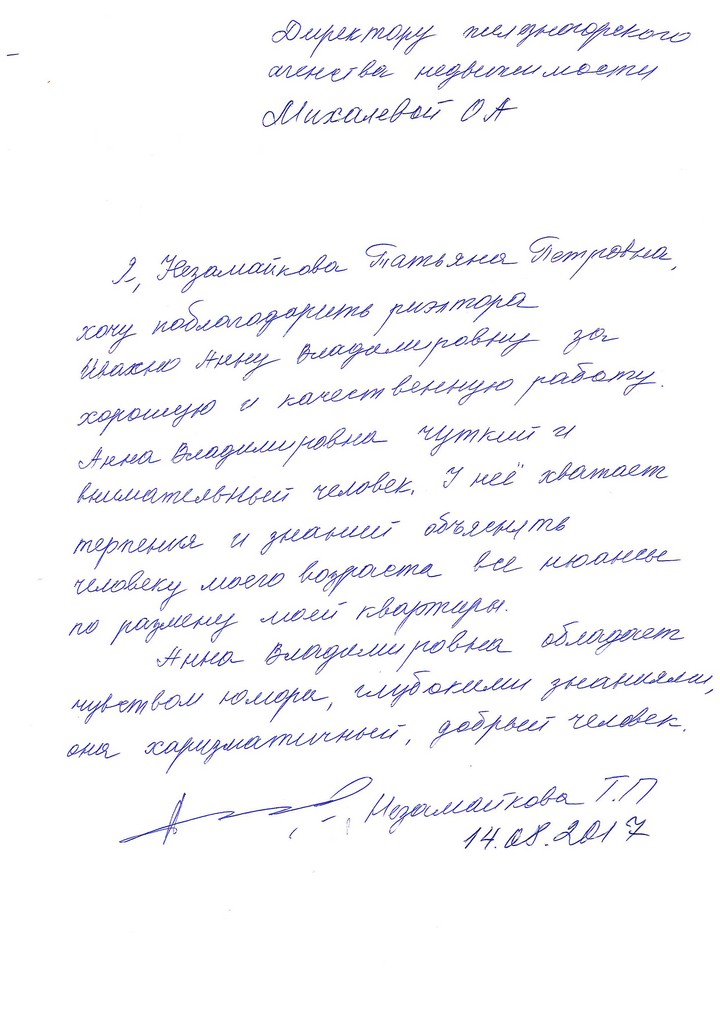 Директору железногорского
агенства недвижимости
Михалевой О А
Я, Незамайкова Татьяна Петровна,
хочу поблагодарить риэлтора
Анну Владимировну за
хорошую и качественную работу.
Анна Владимировна чуткий и
внимательный человек. У неё хватает
терпения и знаний объяснять
человеку моего возраста все нюансы
по размену моей квартиры.
Анна Владимировна обладает
чувством юмора, глубокими знаниями,
она харизматичный, добрый человек.
Незамайкова Т.П
14.08.2017